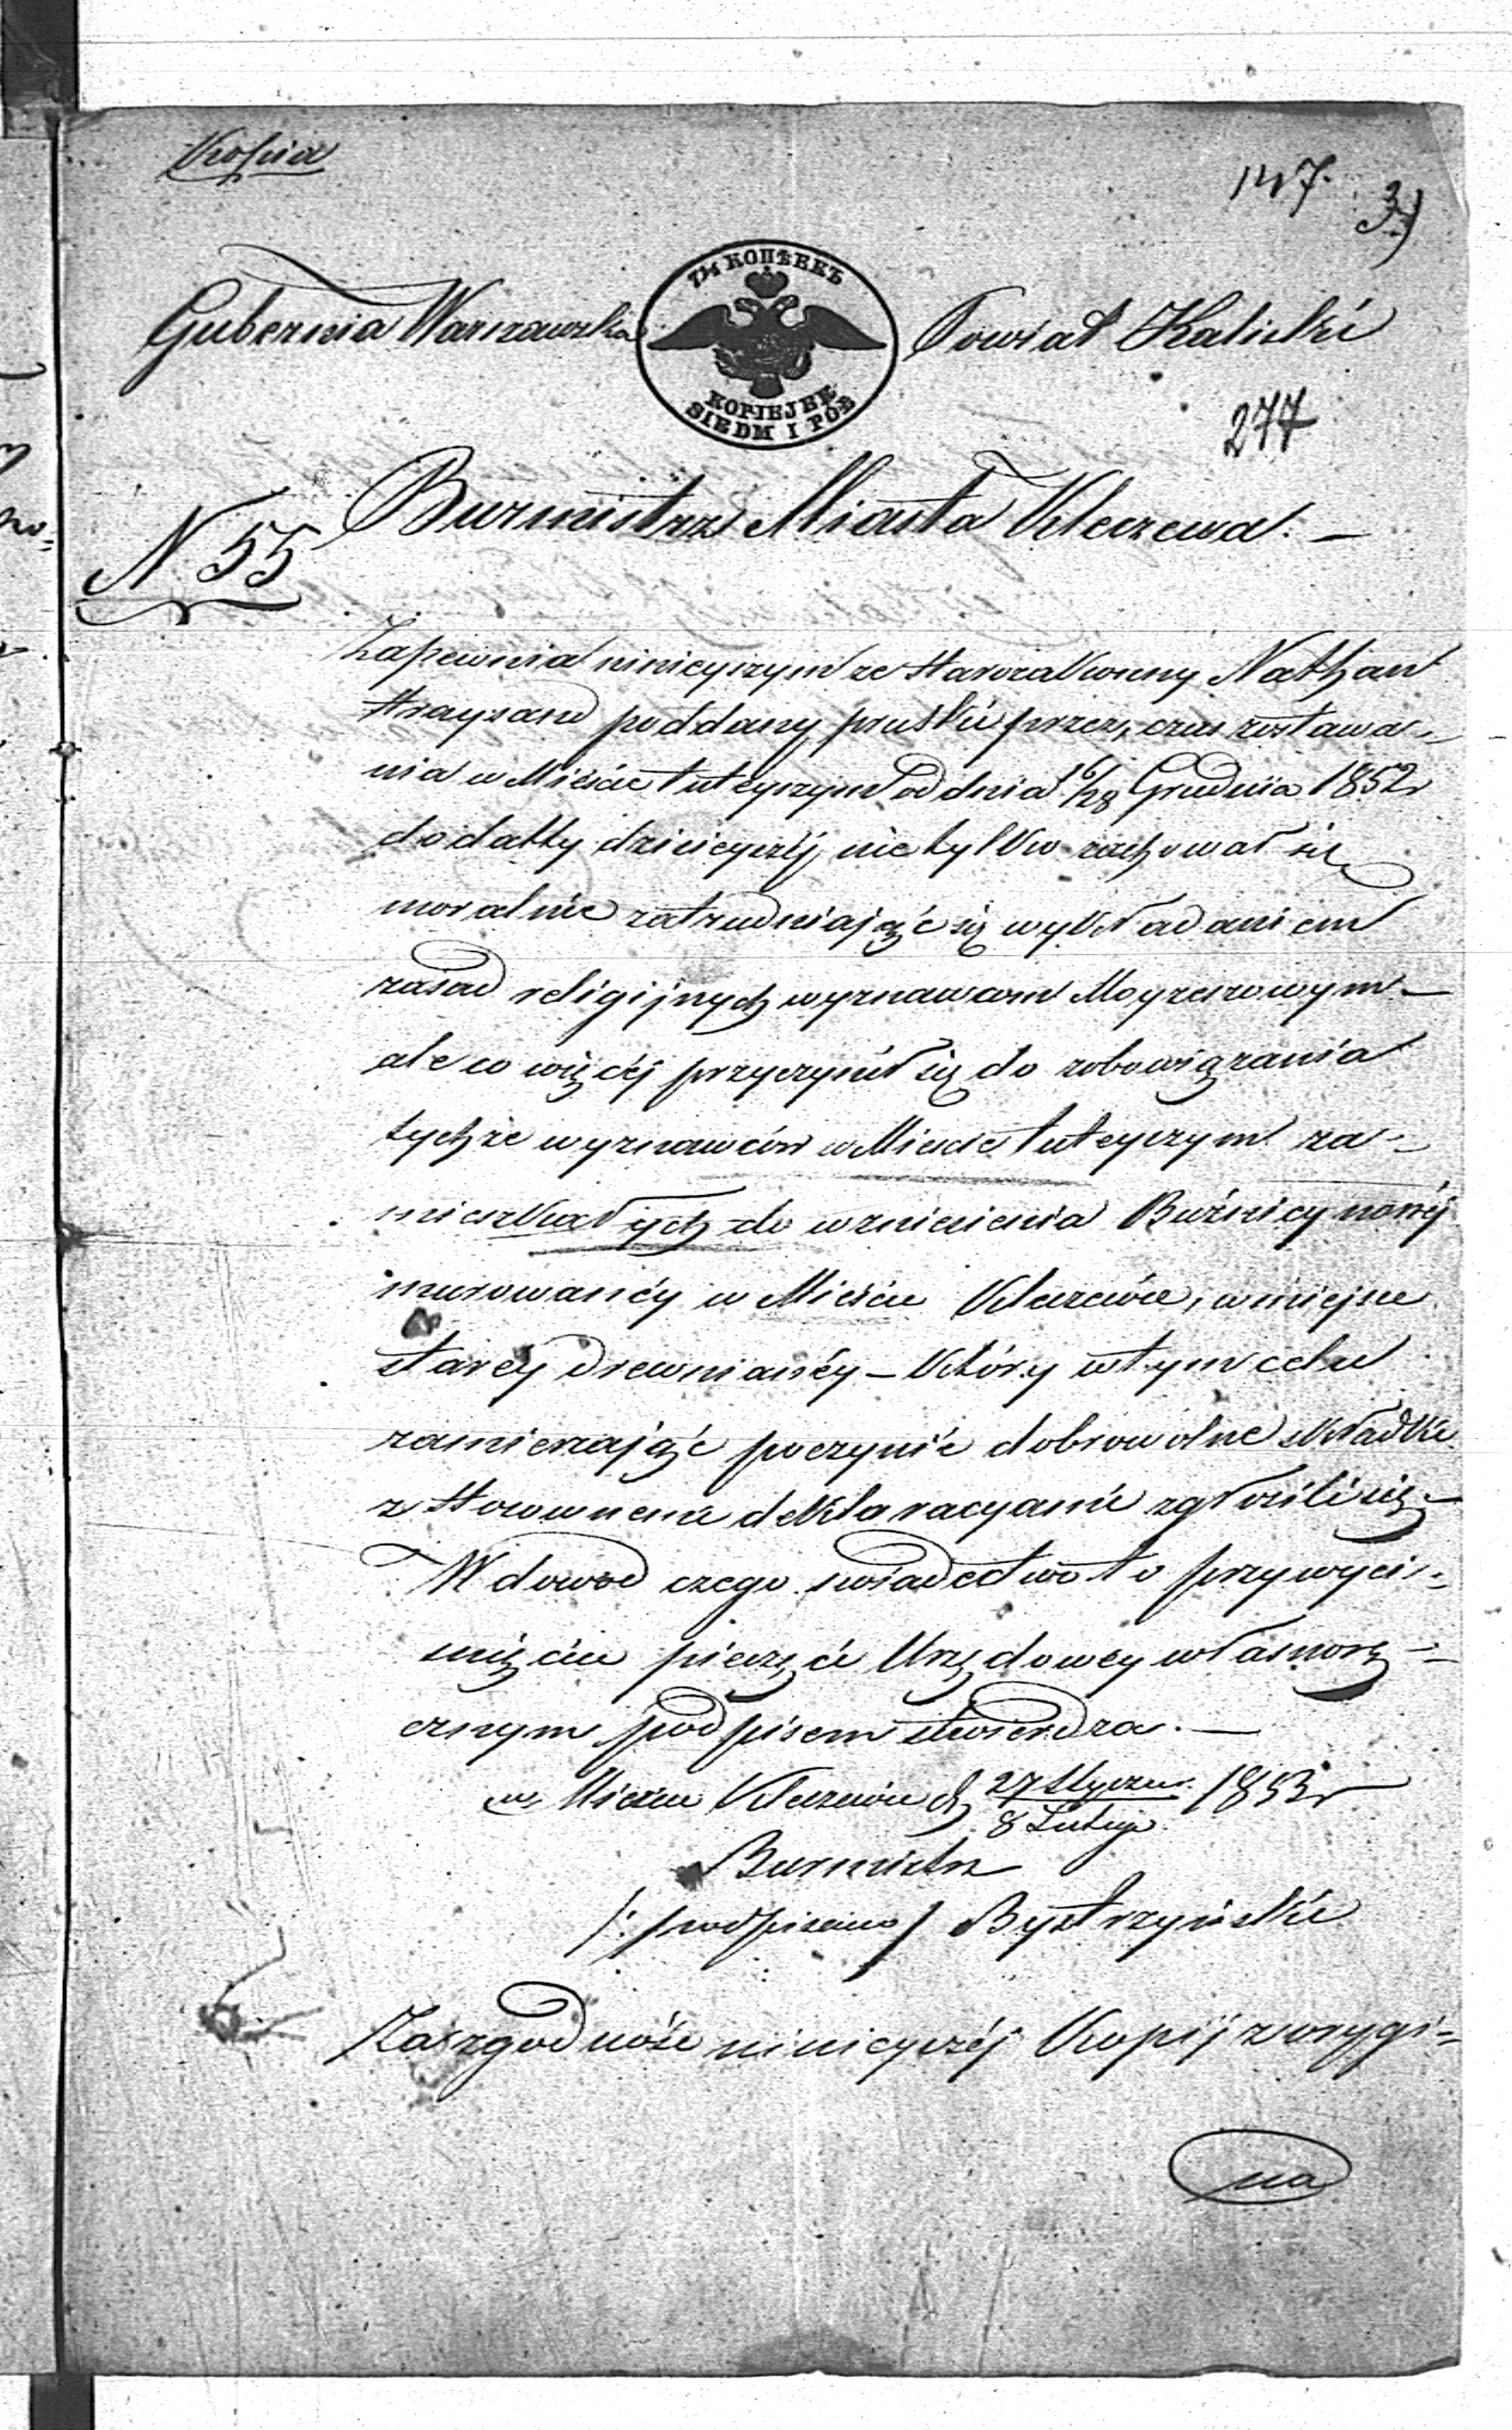 Kopia
147. 3)
Gubernia Warszawska Powiat Kaliski
7½ КОПѢЕКЪ
KOPIEJEK
SIEDM I PÓŁ
277
Burmistrz Miasta Kleczewa. —
N 55
Zapewnia niniejszym że starozakonny Nathan
poddany pruski przez czas zostawa-
nia w Mieście tuteyszym od dnia 16/28 Grudnia 1852 r
do datty dzisieyszéj nie tylko zachował się
moralnie zatrudniając się wykładaniem
zasad religijnych wyznawcom Moyżeszowym —
ale co więcéj przyczynił się do zobowiązania
tychże wyznawców w Mieście tuteyszym za-
mieszkałych do wzniesienia Bużnicy nowéj
murowanéy w Mieście Kleczewie, w miejsce
starey drewnianéy — którzy w tym celu
zamierzając poczynić dobrowolne składki
z stosownemi deklaracyami zgłosili się —
W dowód czego świadectwo to przy wyci-
śnięciu pieczęci Urzędowey własnorę-
cznym podpisem stwierdza. —
w Mieście Kleczewie d. 27 Stycznia / 8 Lutego 1853 r
Burmistrz
/: podpisano / Bystrzyński
Za zgodność ninieyszéj Kopij z orygi-
na